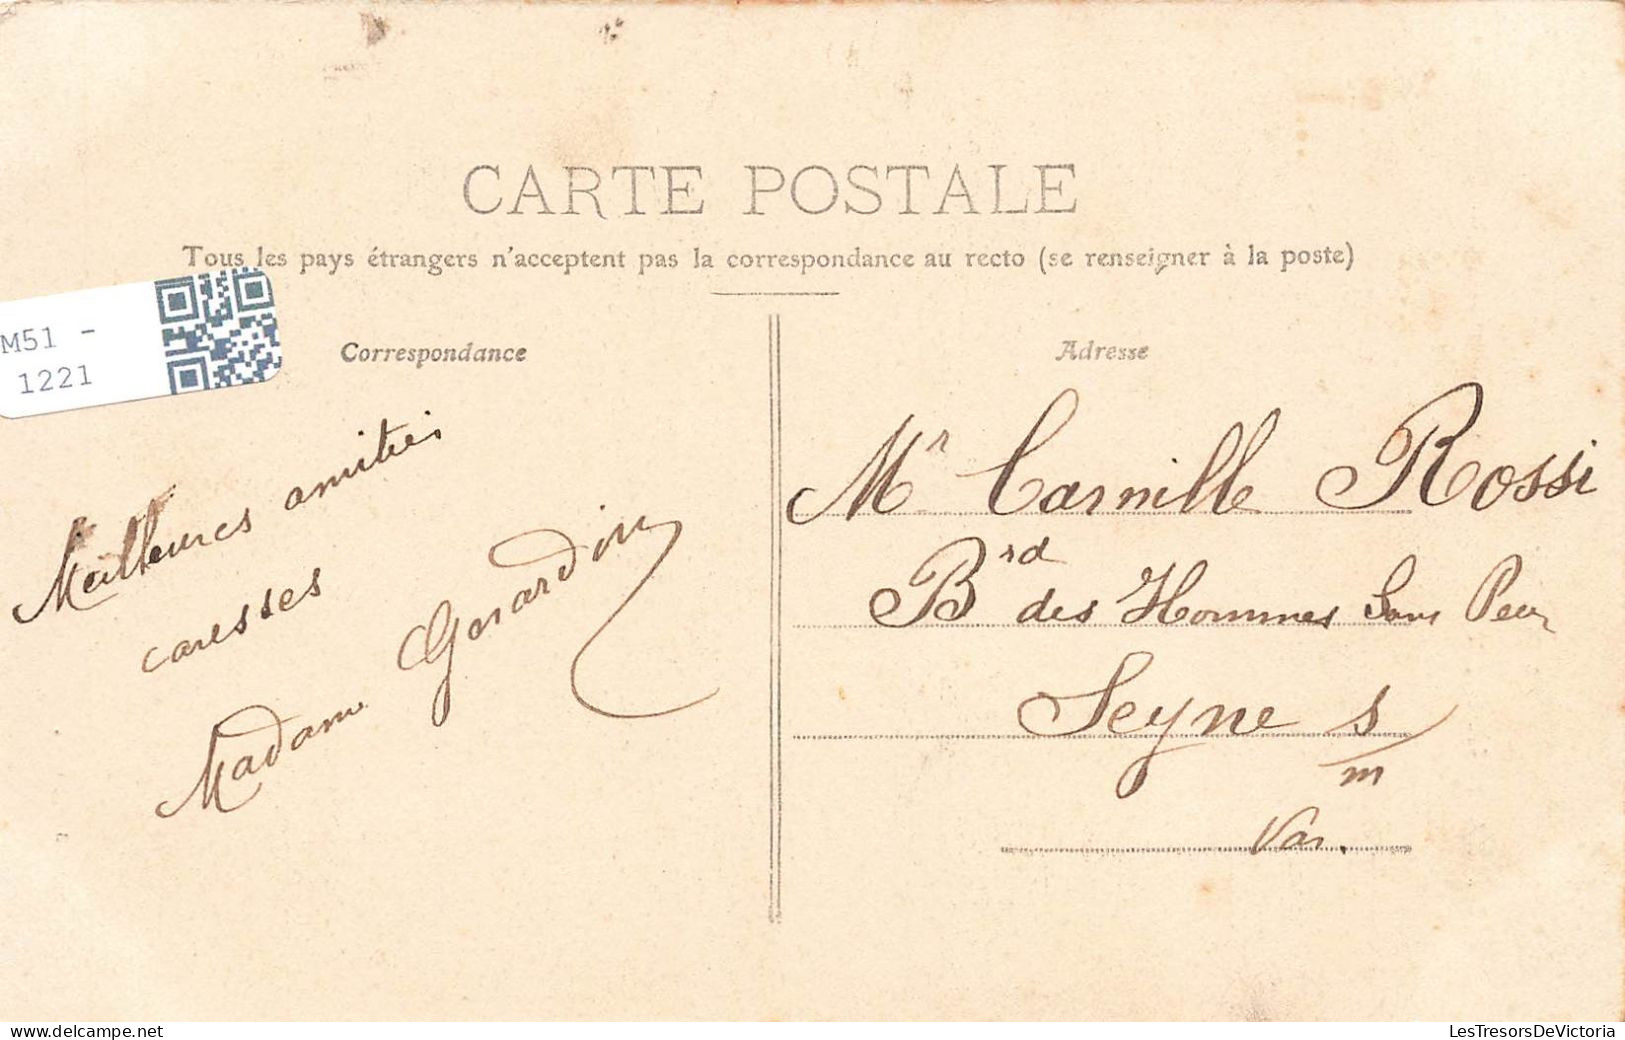 CARTE POSTALE
Tous les pays étrangers n'acceptent pas la correspondance au recto (se renseigner à la poste)
M51 -
1221
Correspondance
Meilleures amitiés
caresses
Madame Gerardin
Adresse
Mr Camille Rossi
Brd des Hommes Sans Peur
Seyne s/m
Var.
LesTresorsDeVictoria
www.delcampe.net